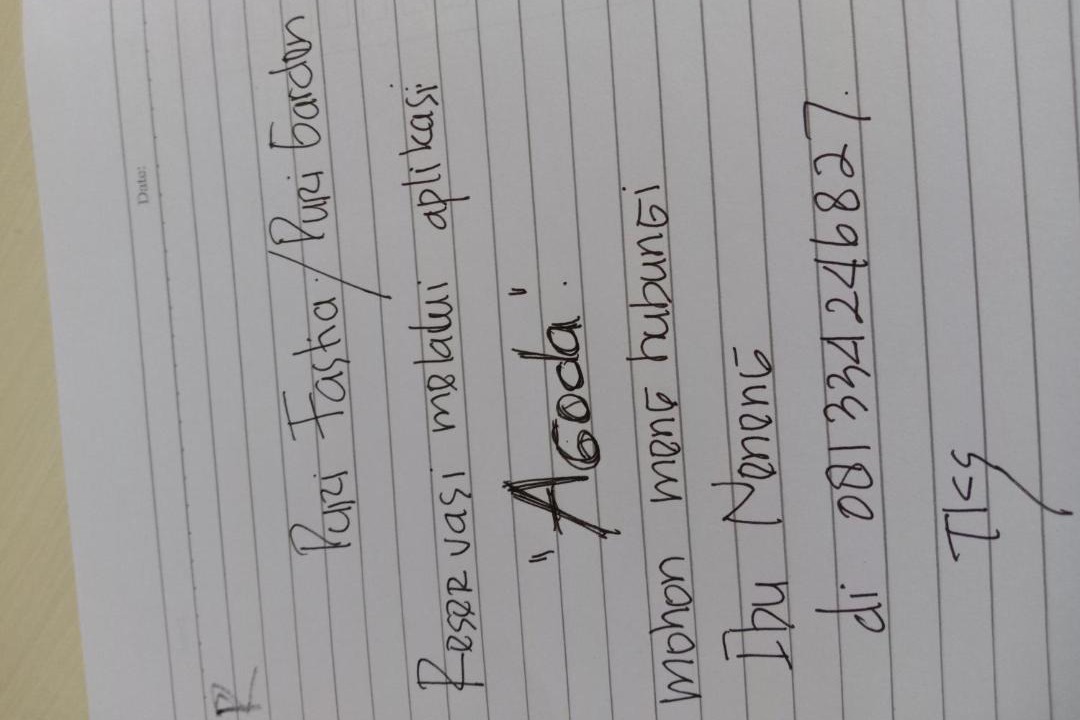 Date:
R
Puri Fastia / Puri Garden
Reservasi melalui aplikasi
"AGoda".
mohon meng hubungi
Ibu Nanang
di 081334246827.